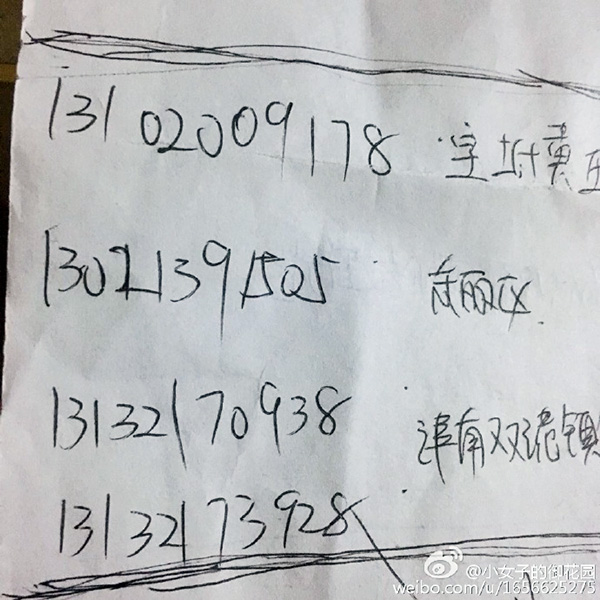 13102009178 宝坻黄
13021391505 东丽区.
13132170938 津南双港镇
13132173928
@小女子的御花园
weibo.com/u/1656625275